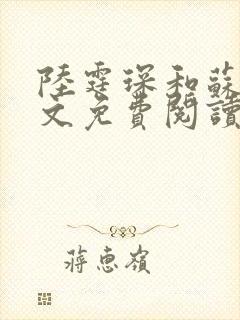 陸霆琛和蘇
文免費閱讀
蔣惠嶺